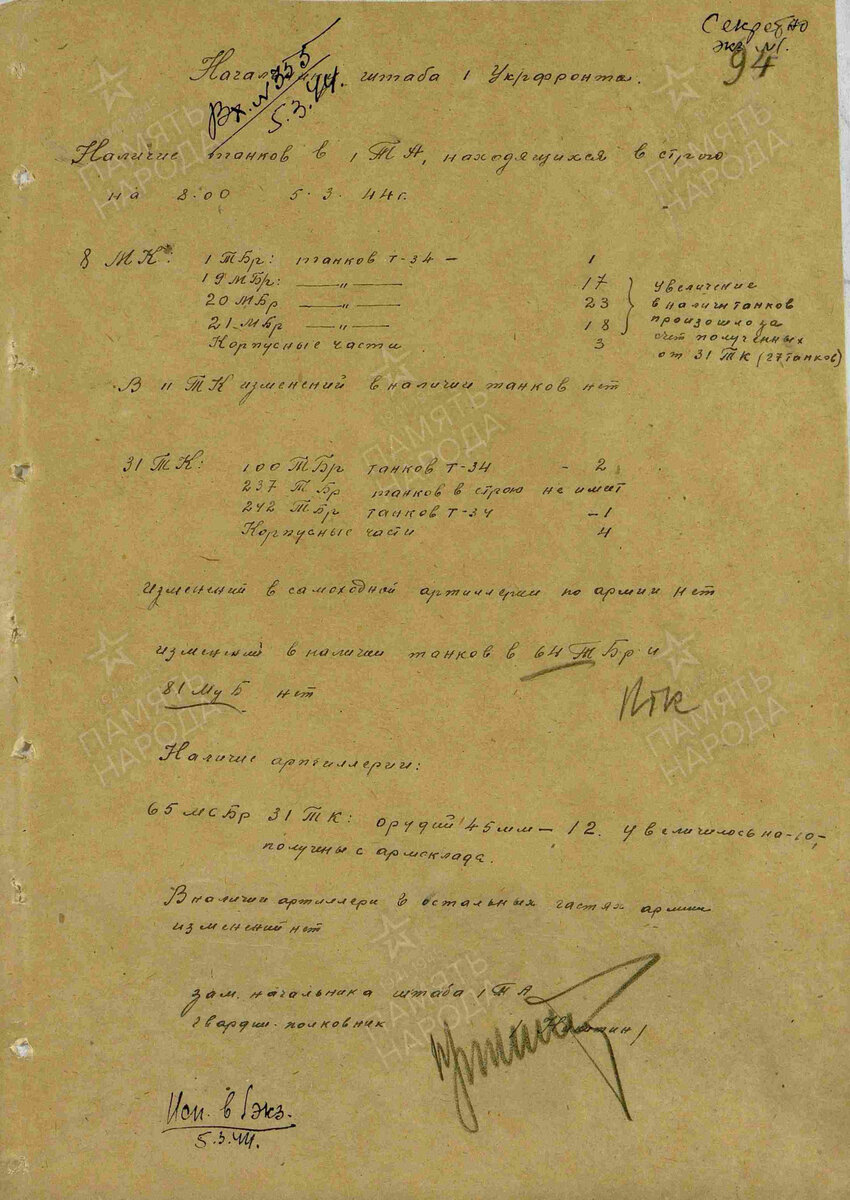 Секретно
экз. №1.
94
Вх. №355
5.3.44.
штаба 1 Укрфронта.
Наличие танков в 1 ТА, находящихся в строю
на 8.00 5.3.44г.
8 МК: 1 ТБр: танков Т-34 – 1
19 МБр: —— " —— 17
20 МБр —— " —— 23
21 МБр —— " —— 18
Корпусные части 3
увеличение
в наличии танков
произошло за
счет полученных
от 31 ТК (27 танков)
В 11 ТК изменений в наличии танков нет
31 ТК: 100 ТБр танков Т-34 – 2
237 ТБр танков в строю не имеет
242 ТБр танков Т-34 – 1
Корпусные части 4
изменений в самоходной артиллерии по армии нет
изменений в наличии танков в 64 ТБр и
81 МуБ нет
Наличие артиллерии:
65 мсБр 31 ТК: орудий 45мм – 12. увеличилось на-10,
получены с армсклада.
В наличии артиллери в остальных частях армии
изменений нет
зам. начальника штаба 1 ТА
гвардии-полковник
5.3.44.
ПАМЯТЬ
НАРОДА